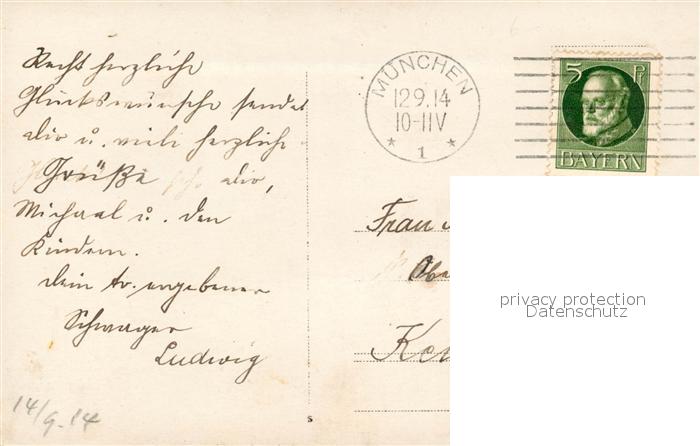 Recht herzliche
Glückswünsche sendet
dir u. viele herzliche
Grüße dir,
Michael u. den
Kindern.
dein tr. ergebener
Schwager
Ludwig
14/9. 14
MÜNCHEN
12 9. 14
10-11 V
* 1 *
5 Pf
BAYERN
Frau
Obe
privacy protection
Datenschutz
s